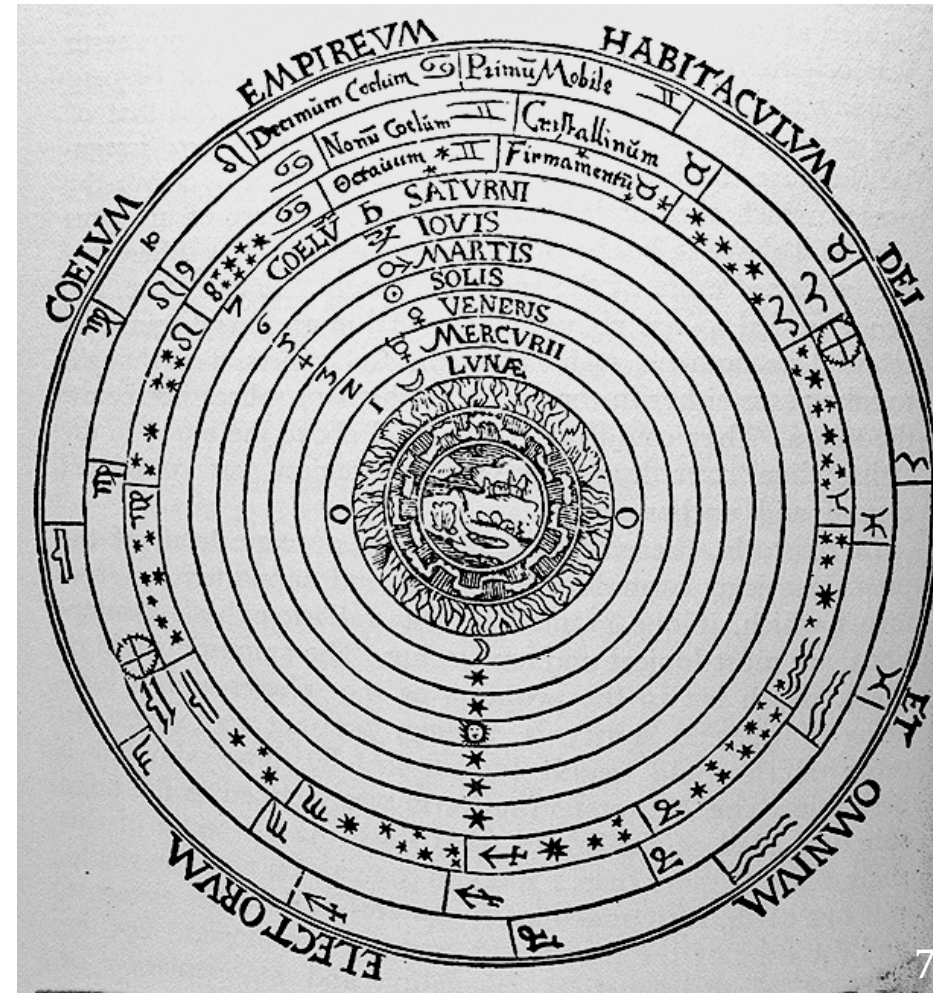 COELVM EMPIREVM HABITACVLVM DEI ET OMNIVM ELECTORVM
Decimũm Coelum ♋ Primũ Mobile
Nonũ Coelũm Cristallinũm
Octauum Firmamentũ
COELV̄ SATVRNI
IOVIS
MARTIS
SOLIS
VENERIS
MERCVRII
LVNÆ
10
9
8
7
6
5
4
3
2
1
7